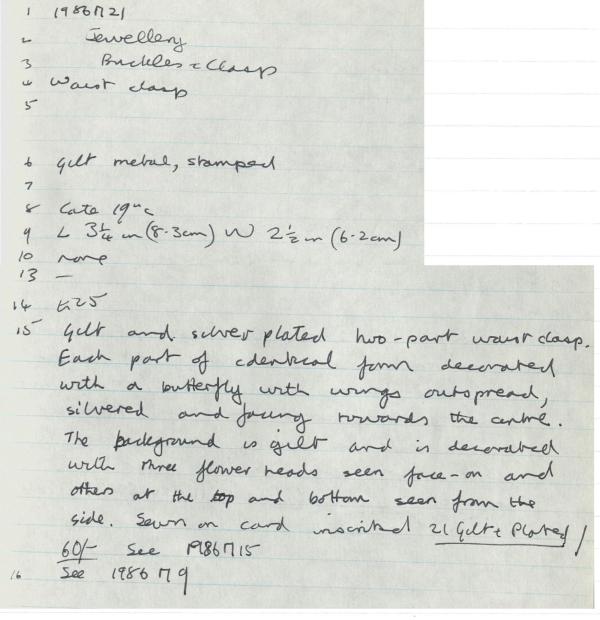 1 1986 M 21
2 Jewellery
3 Buckles & Clasp
4 Waist clasp
5
6 Gilt metal, stamped
7
8 Late 19th c
9 L 3 1/4 in (8.3cm) W 2 1/2 in (6.2cm)
10 none
13 —
14 £25
15 Gilt and silver plated two-part waist clasp.
Each part of identical form decorated
with a butterfly with wings outspread,
silvered and facing towards the centre.
The background is gilt and is decorated
with three flower heads seen face-on and
others at the top and bottom seen from the
side. Sewn on card inscribed 21 Gilt & Plated /
60/- See 1986 M 15
16 See 1986 M 9